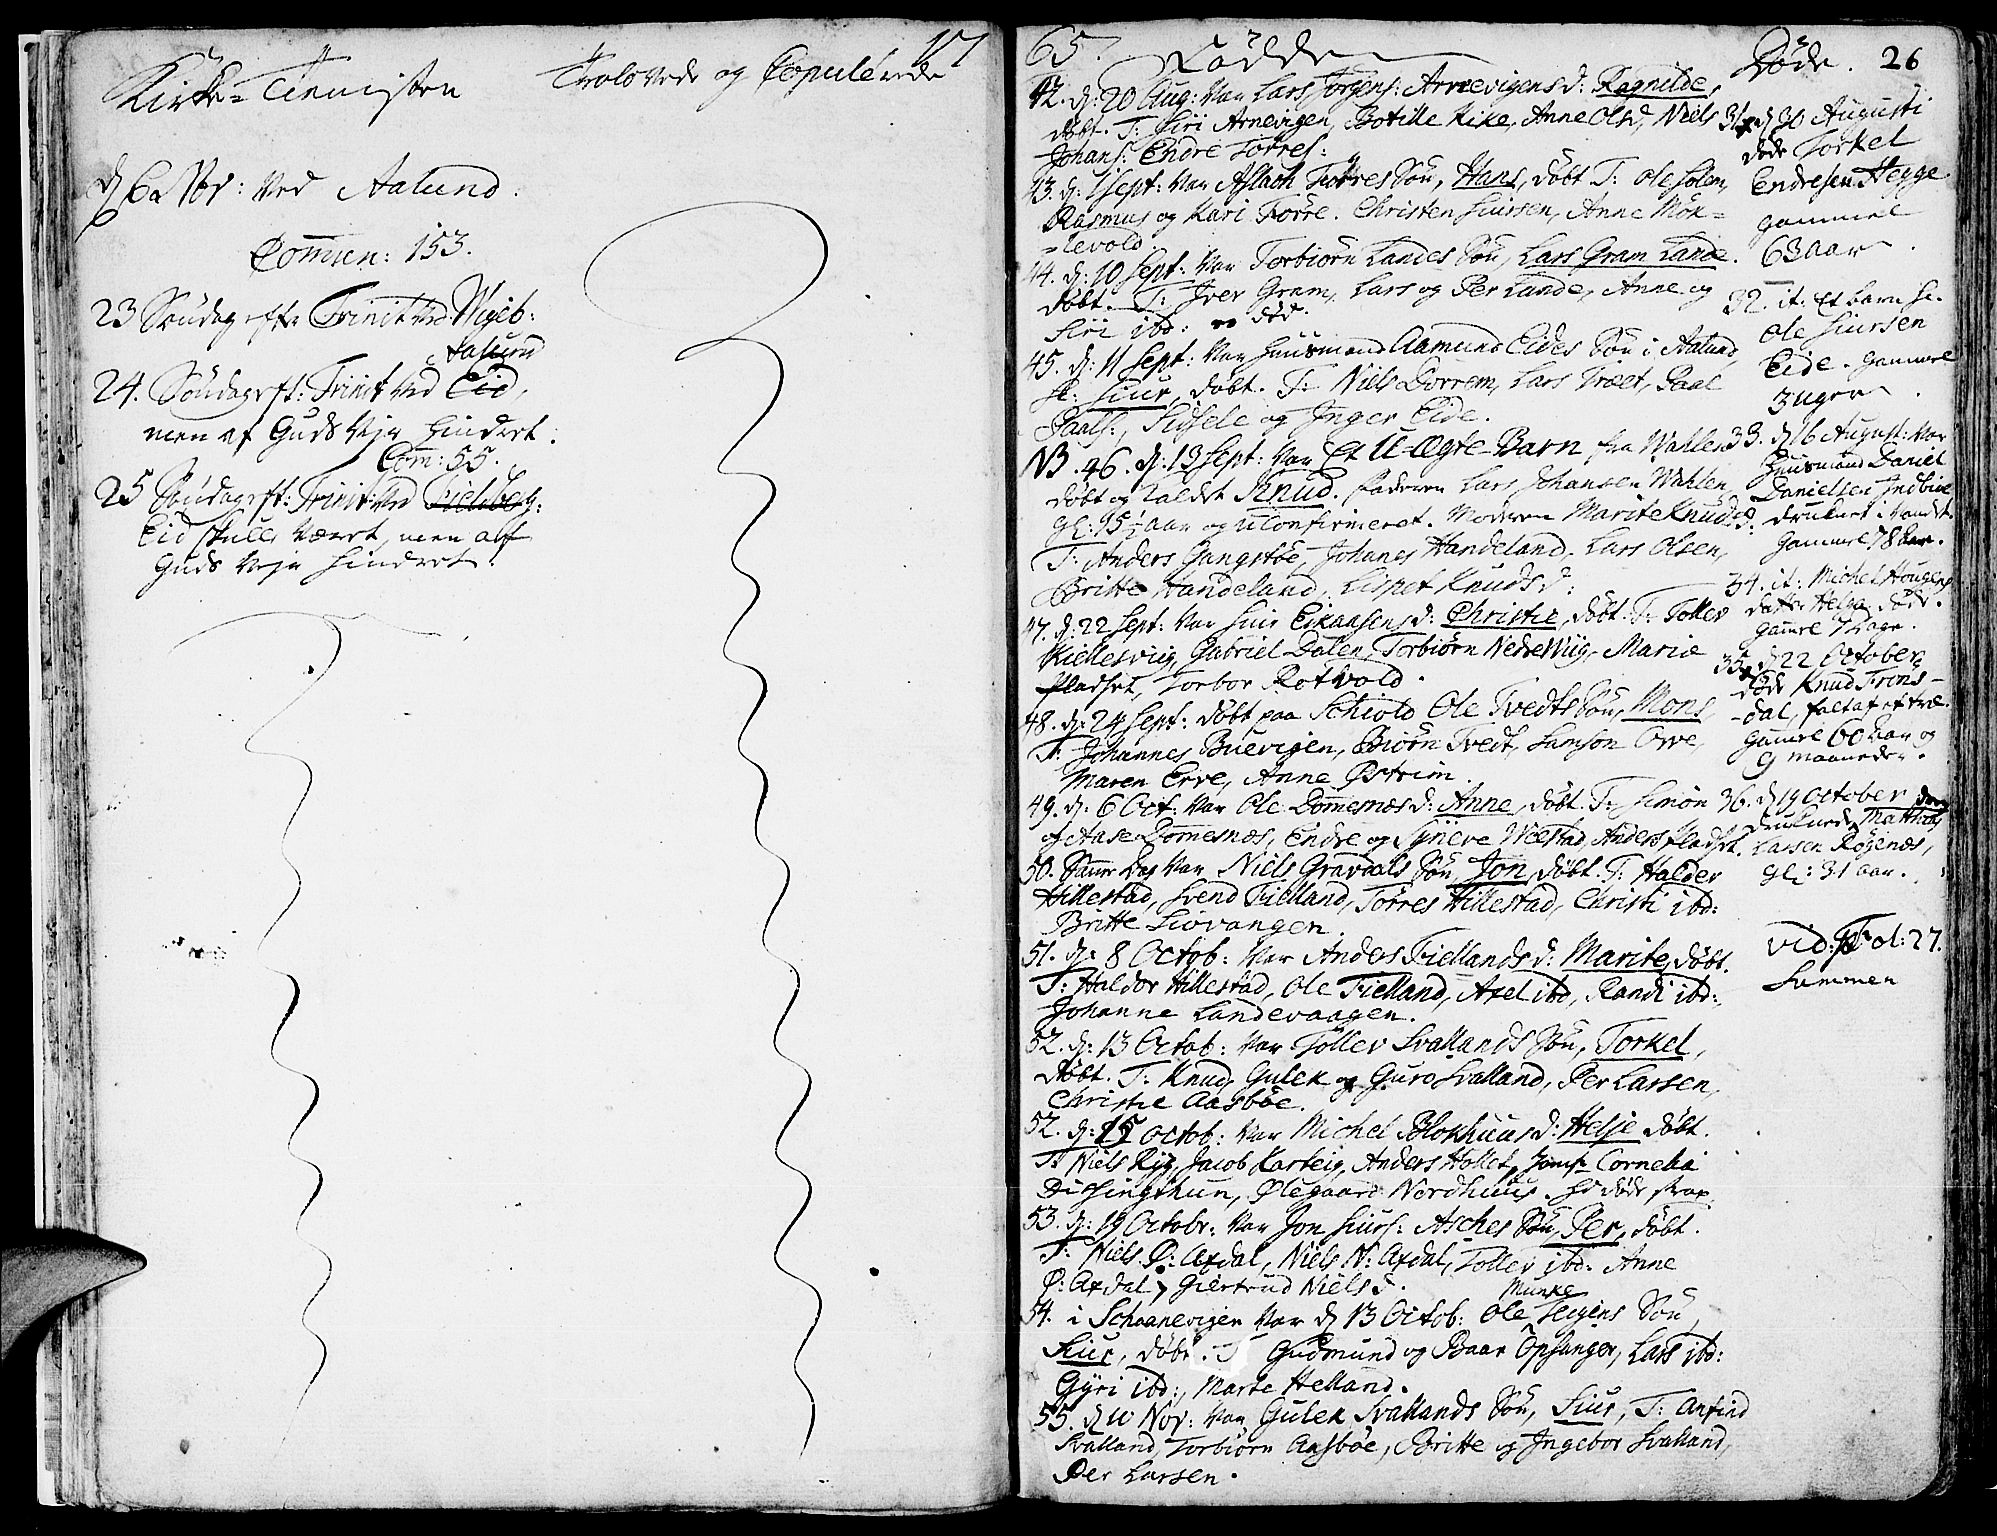 Kirke-Tienisten Trolovede og Copulerede 17
d 6 Nov: Ved Aalund.
Comuen: 153.
23 Søndag efter Trinit: ved Wigeb:
Aalund
24. Søndag eft: Trinit ved Eid,
men af Guds Veje hindret.
Com: 55.
25 Søndag eft: Trinit: ved Fieldberg:
Eid skulle været, men af
Guds Veje hindret.
65. Fødde
42. d: 20 Aug: Var Lars Jørgens: Arnevigens d: Ragnilde,
døbt. T: Siri Arnevigen, Botille Kike, Anne Olsd, Niels
Johans: Endre Torres:
43. d: 1 Sept: Var Aslach Torres Søn, Hans, døbt T: Ole Solem,
Rasmus og Kari Torre. Christen Siursen, Anne Møk=
=levold.
44. d: 10 Sept: Var Torbiørn Landes Søn, Lars Gram Lande.
døbt. T: Iver Gram, Lars og Per Lande, Anne og
Siri ibd: død.
45. d: 11 Sept: Var Huusmand Aamund Eides Søn i Aalund,
Siur, døbt. T: Niels Dorrem, Lars Træet, Paal
Paals:, Sidsele og Inger Eide.
NB. 46. d: 13 Sept: Var Et U-Ægte-Barn fra Wahlen
døbt og kaldet Knud. Faderen Lars Johansen Wahlen
gl: 15½ aar og uconfirmeret. Moderen Marite Knudsd:
T: Anders Gangstøe, Johanes Handeland, Lars Olsen,
Britte Handeland, Lispet Knudsd:
47. d: 22 Sept: Var Siur Eikaasens d: Christie, døbt. T: Tollev
Kiellesviig, Gabriel Dalen, Torbiørn Nedre Wiig, Marie
Pladset, Torbor Rotvold.
48. d: 24 Sept: døbt paa Schiold Ole Tvedts Søn, Mons,
T: Johannes Buevigen, Biørn Tvedt, Samson Erve,
Maren Erve, Anne Østrim.
49. d: 6 Oct: Var Ole Dommesnæs d: Anne, døbt. T: Simon
og Aase Dommesnæs, Endre og Syneve Westad, Anders Pladset.
50. Samme Dag Var Niels Gravdals Søn, Jon, døbt. T: Haldor
Hillestad, Svend Fielland, Torres Hillestad, Christi ibd:
Britte Siovangen.
51. d: 8 Octob: Var Anders Fiellands d: Marite, døbt.
T: Haldor Hillestad, Ole Fielland, Axel ibd, Randi ibd:
Johanne Landevaagen.
52. d: 13 Octob: Var Tollev Svallands Søn, Torkel,
døbt. T: Knud, Gulek og Guro Svalland, Per Larsen,
Christie Aasbøe.
52. d: 15 Octob: Var Michel Blokhuus d: Helje døbt.
T: Niels Ryg, Jacob Karteig, Anders Hollet, Jomf: Cornelia
Dissingthun, Ølegaard Nordhuus. død strax.
53. d: 19 Octobr: Var Jon Siurs: Asches Søn, Per, døbt.
T: Niels Ø: Axdal, Niels N: Axdal, Tollev ibd: Anne
Ø: Axdal, Giertrud Nielsd.
54. i Schaanevigen Var d 13 Octob: Ole Munke Teigens Søn,
Siur, døbt. T Gudmund og Baar Opsanger, Lars ibd:
Gyri ibd:, Marte Helland.
55. d 10 Nov: Var Gulek Svallands Søn, Siur, T: Anfind
Svalland, Torbiørn Aasbøe, Britte og Ingebor Svalland,
Per Larsen.
Døde. 26
31. d 30 Augusti
døde Torkel
Endresen Hegge
gammel
63 aar.
32. it: et barn
Ole Siursen
Eide. gammel
3 uger.
33. d 16 August: Var
Huusmand Daniel
Danielsen Indbioe
druknet i Vandet.
gammel 78 aar.
34. it: Michel Hougens
datter Helga døde.
gamel 7 dage.
35. d 22 October
døde Knud Frøns-
-dal, falt af et træ.
gamel 60 aar og
9 maaneder.
36. d 19 October
druknede Matthias
Larsen Røgenæs,
gl: 31 aar.
vid: Fol: 27.
Summen